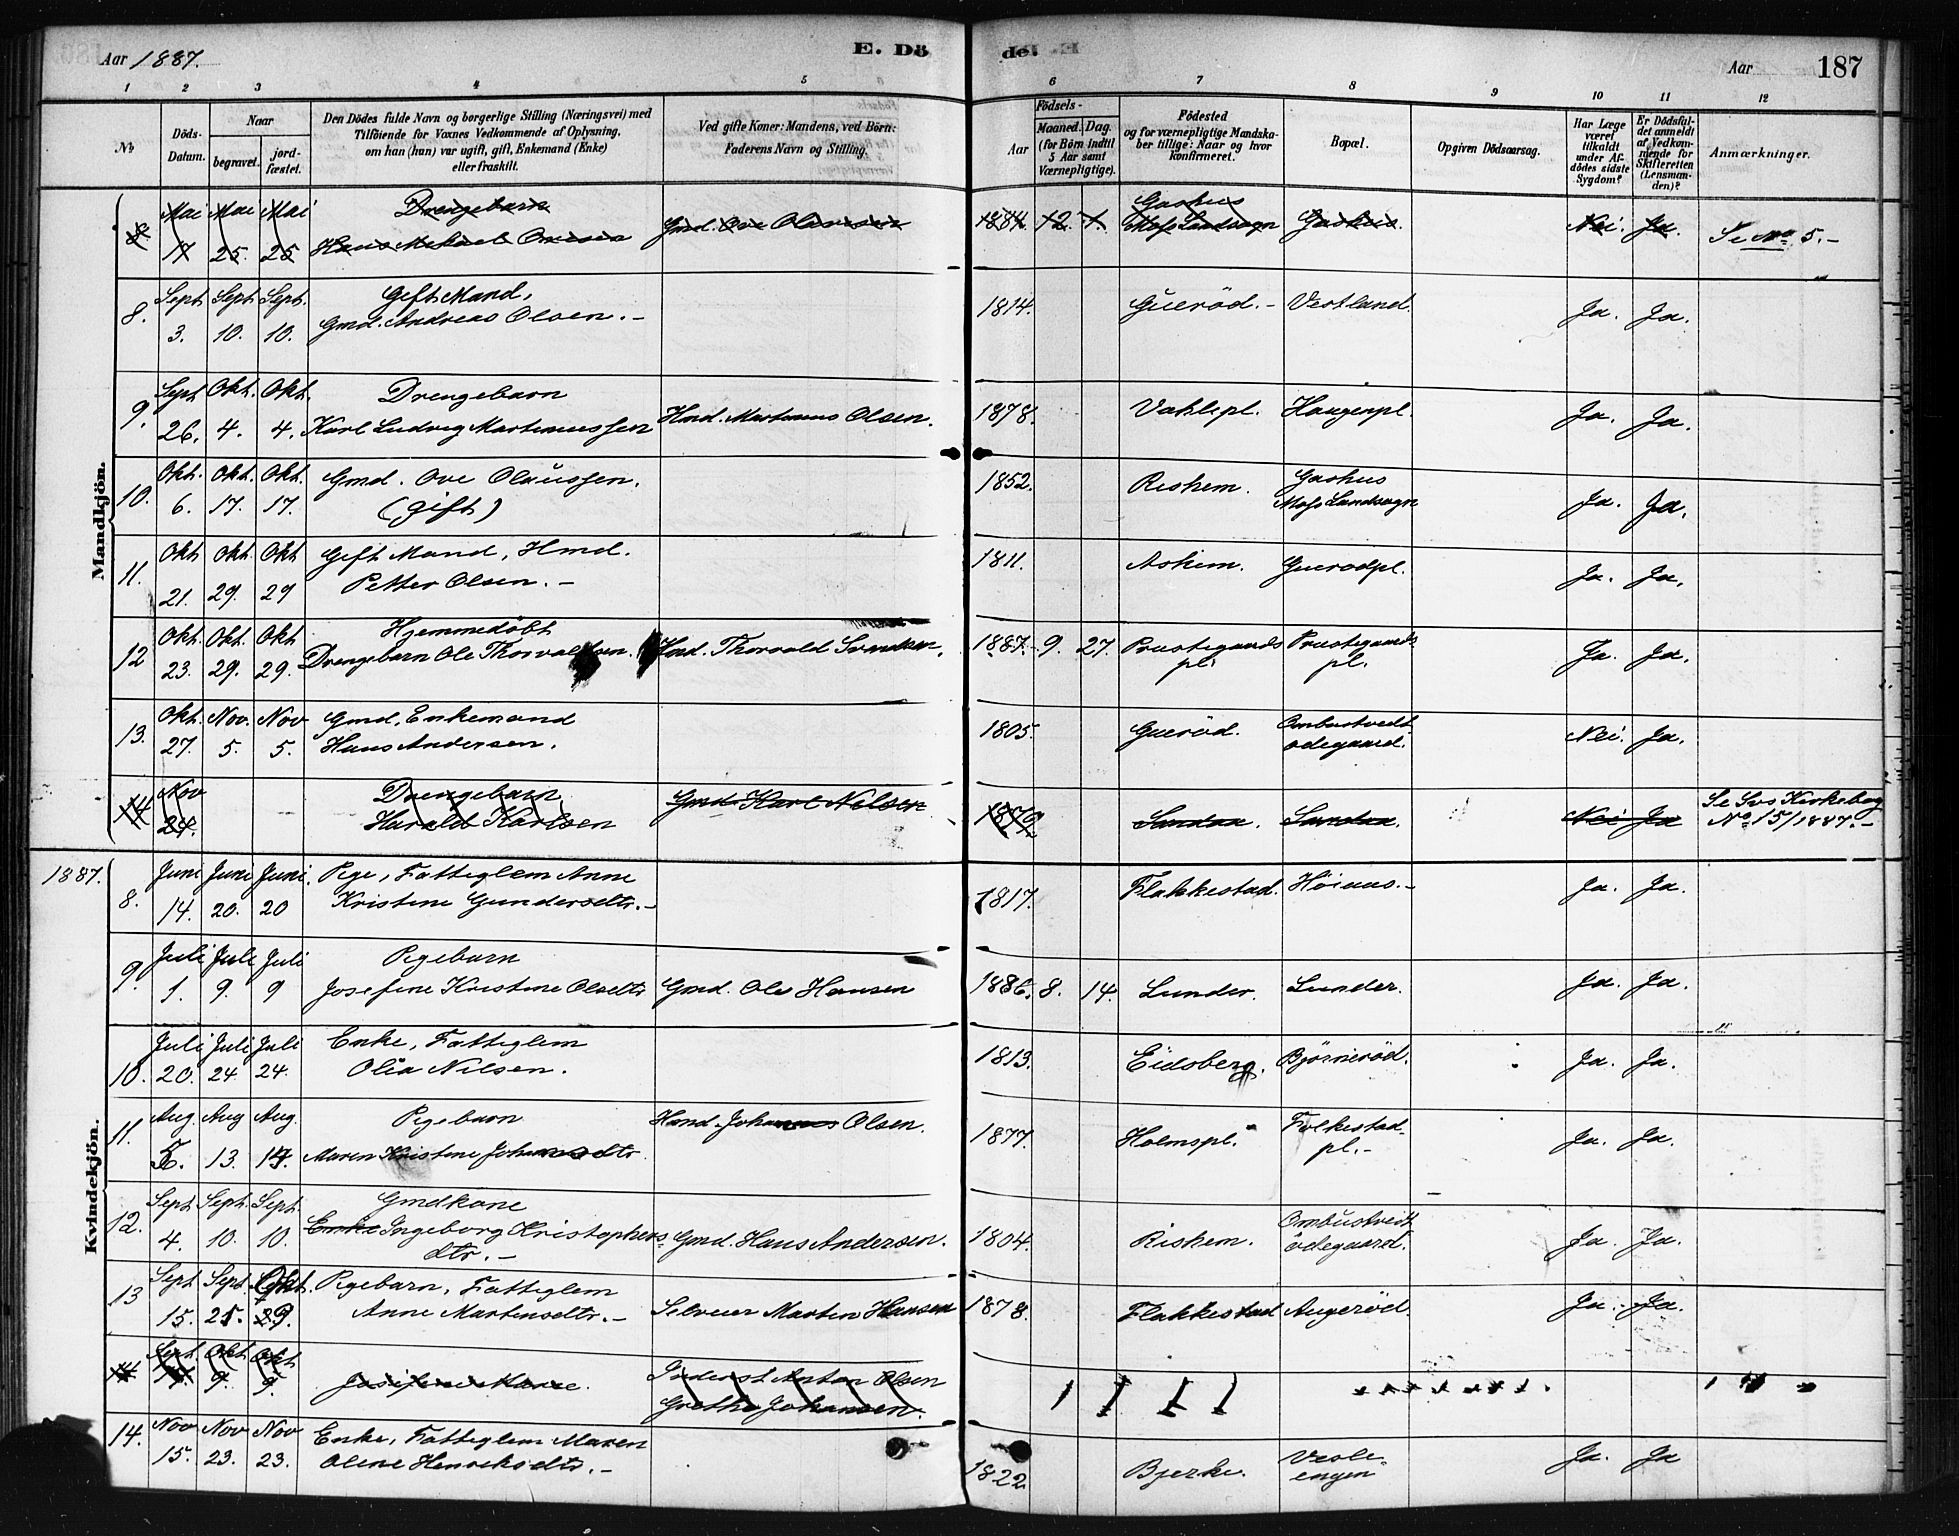 Aar 1887.
E. Dö
de.
Aar
187
1 2 3 4 5 6 7 8 9 10 11 12
No
Döds-Datum.
Naar
begravet.
jord-fæstet.
Den Dödes fulde Navn og borgerlige Stilling (Næringsvei) med
Tilföiende for Voxnes Vedkommende af Oplysning,
om han (hun) var ugift, gift, Enkemand (Enke)
eller fraskilt.
Ved gifte Koner: Mandens, ved Börn:
Faderens Navn og Stilling.
Födsels-
Aar
Maaned. Dag.
(for Börn indtil
5 Aar samt
Værnepligtige).
Födested
og for værnepligtige Mandska-
ber tillige: Naar og hvor
konfirmeret.
Bopæl.
Opgiven Dödsaarsag.
Har Læge
været
tilkaldt
under Af-
dödes sidste
Sygdom?
Er Dödsfal-
det anmeldt
af Vedkom-
mende for
Skifteretten
(Lensman-
den)?
Anmærkninger.
Mandkjön.
8. Mai 17 Mai 25. Mai 25 Drengebarn
Hans Mikael Ovesen Gmd. Ove Olaussen 1884. 12. 1. Gashus
Moss Landsogn Gashus. Nei. Ja. Se No. 5.-
8. Sept 3. Sept 10. Sept. 10. Gift Mand,
Gmd. Andreas Olsen.- 1814. Gueröd.- Vestland. Ja. Ja.
9. Sept 26. Okt. 4. Okt. 4. Drengebarn
Karl Ludvig Martinussen Hmd. Martinus Olsen. 1878. Vahlepl. Haugenpl. Ja. Ja.
10. Okt. 6. Okt 17. Okt. 17. Gmd. Ove Olaussen.
(gift) 1852. Rishem. Gashus
Moss Landsogn Ja. Ja.
11. Okt 21. Okt 29. Okt 29 Gift Mand, Hmd.
Petter Olsen.- 1811. Ashem. Guerodpl. Ja. Ja.
12 Okt. 23. Okt. 29. Okt 29. Hjemmedöbt
Drengebarn Ole Thorvaldsen. Hmd. Thorvald Svendsen. 1887. 9. 27. Prestegaards
pl. Prestegaards
pl. Ja. Ja.
13. Okt. 27. Nov. 5. Nov 5. Gmd, Enkemand
Hans Andersen. 1805. Gueröd. Ombustvedt
ödegaard. Nei. Ja.
14 Nov 24. Drengebarn
Harald Karlsen Gmd Karl Nilsen 1879 Sandaa. Sandaa. Nei Ja Se Svs Kirkebog
No 15/1887.-
1887.
Kvindekjön.
8. Juni 14. Juni 20. Juni. 20 Pige, Fattiglem Anne
Kristine Gundersdtr.- 1817. Flakkestad. Höiaas.- Ja. Ja.
9. Juli 1. Juli 9. Juli 9 Pigebarn
Josefine Kristine Olsdtr Gmd. Ole Hansen 1886. 8. 14. Lunder. Lunder. Ja. Ja.
10. Juli 20. Juli 24 Juli 24. Enke, Fattiglem
Olia Nilsen. 1813. Eidsberg. Björneröd. Ja. Ja.
11. Aug. 5. Aug 13. Aug. Pigebarn
Maren Kristine Johannesdtr. Hmd. Johannes Olsen. 1877. Holmspl. Folkestad-
pl.- Ja. Ja.
12. Sept 4. Sept. 10. Sept. 10. Gmdkone
Enke Ingeborg Kristophers-
dtr.- Gmd. Hans Andersen. 1804. Rishem. Ombustvedt
ödegaard. Ja. Ja.
13 Sept 15. Sept 25. Okt. Pigebarn, Fattiglem
Anne Martinsdtr.- Selveier Martin Hansen 1878. Flakkestad Augeröd. Ja. Ja.
14 Sept. Okt 9. Okt 9. Josefine Marie. Inderst Anton Olsen
Grethe Johansen.
14. Nov 15. Nov 23. Nov 23. Enke, Fattiglem Maren
Oline Henriksdtr.- 1822 Bjerke. Vesle-
engen Ja. Ja